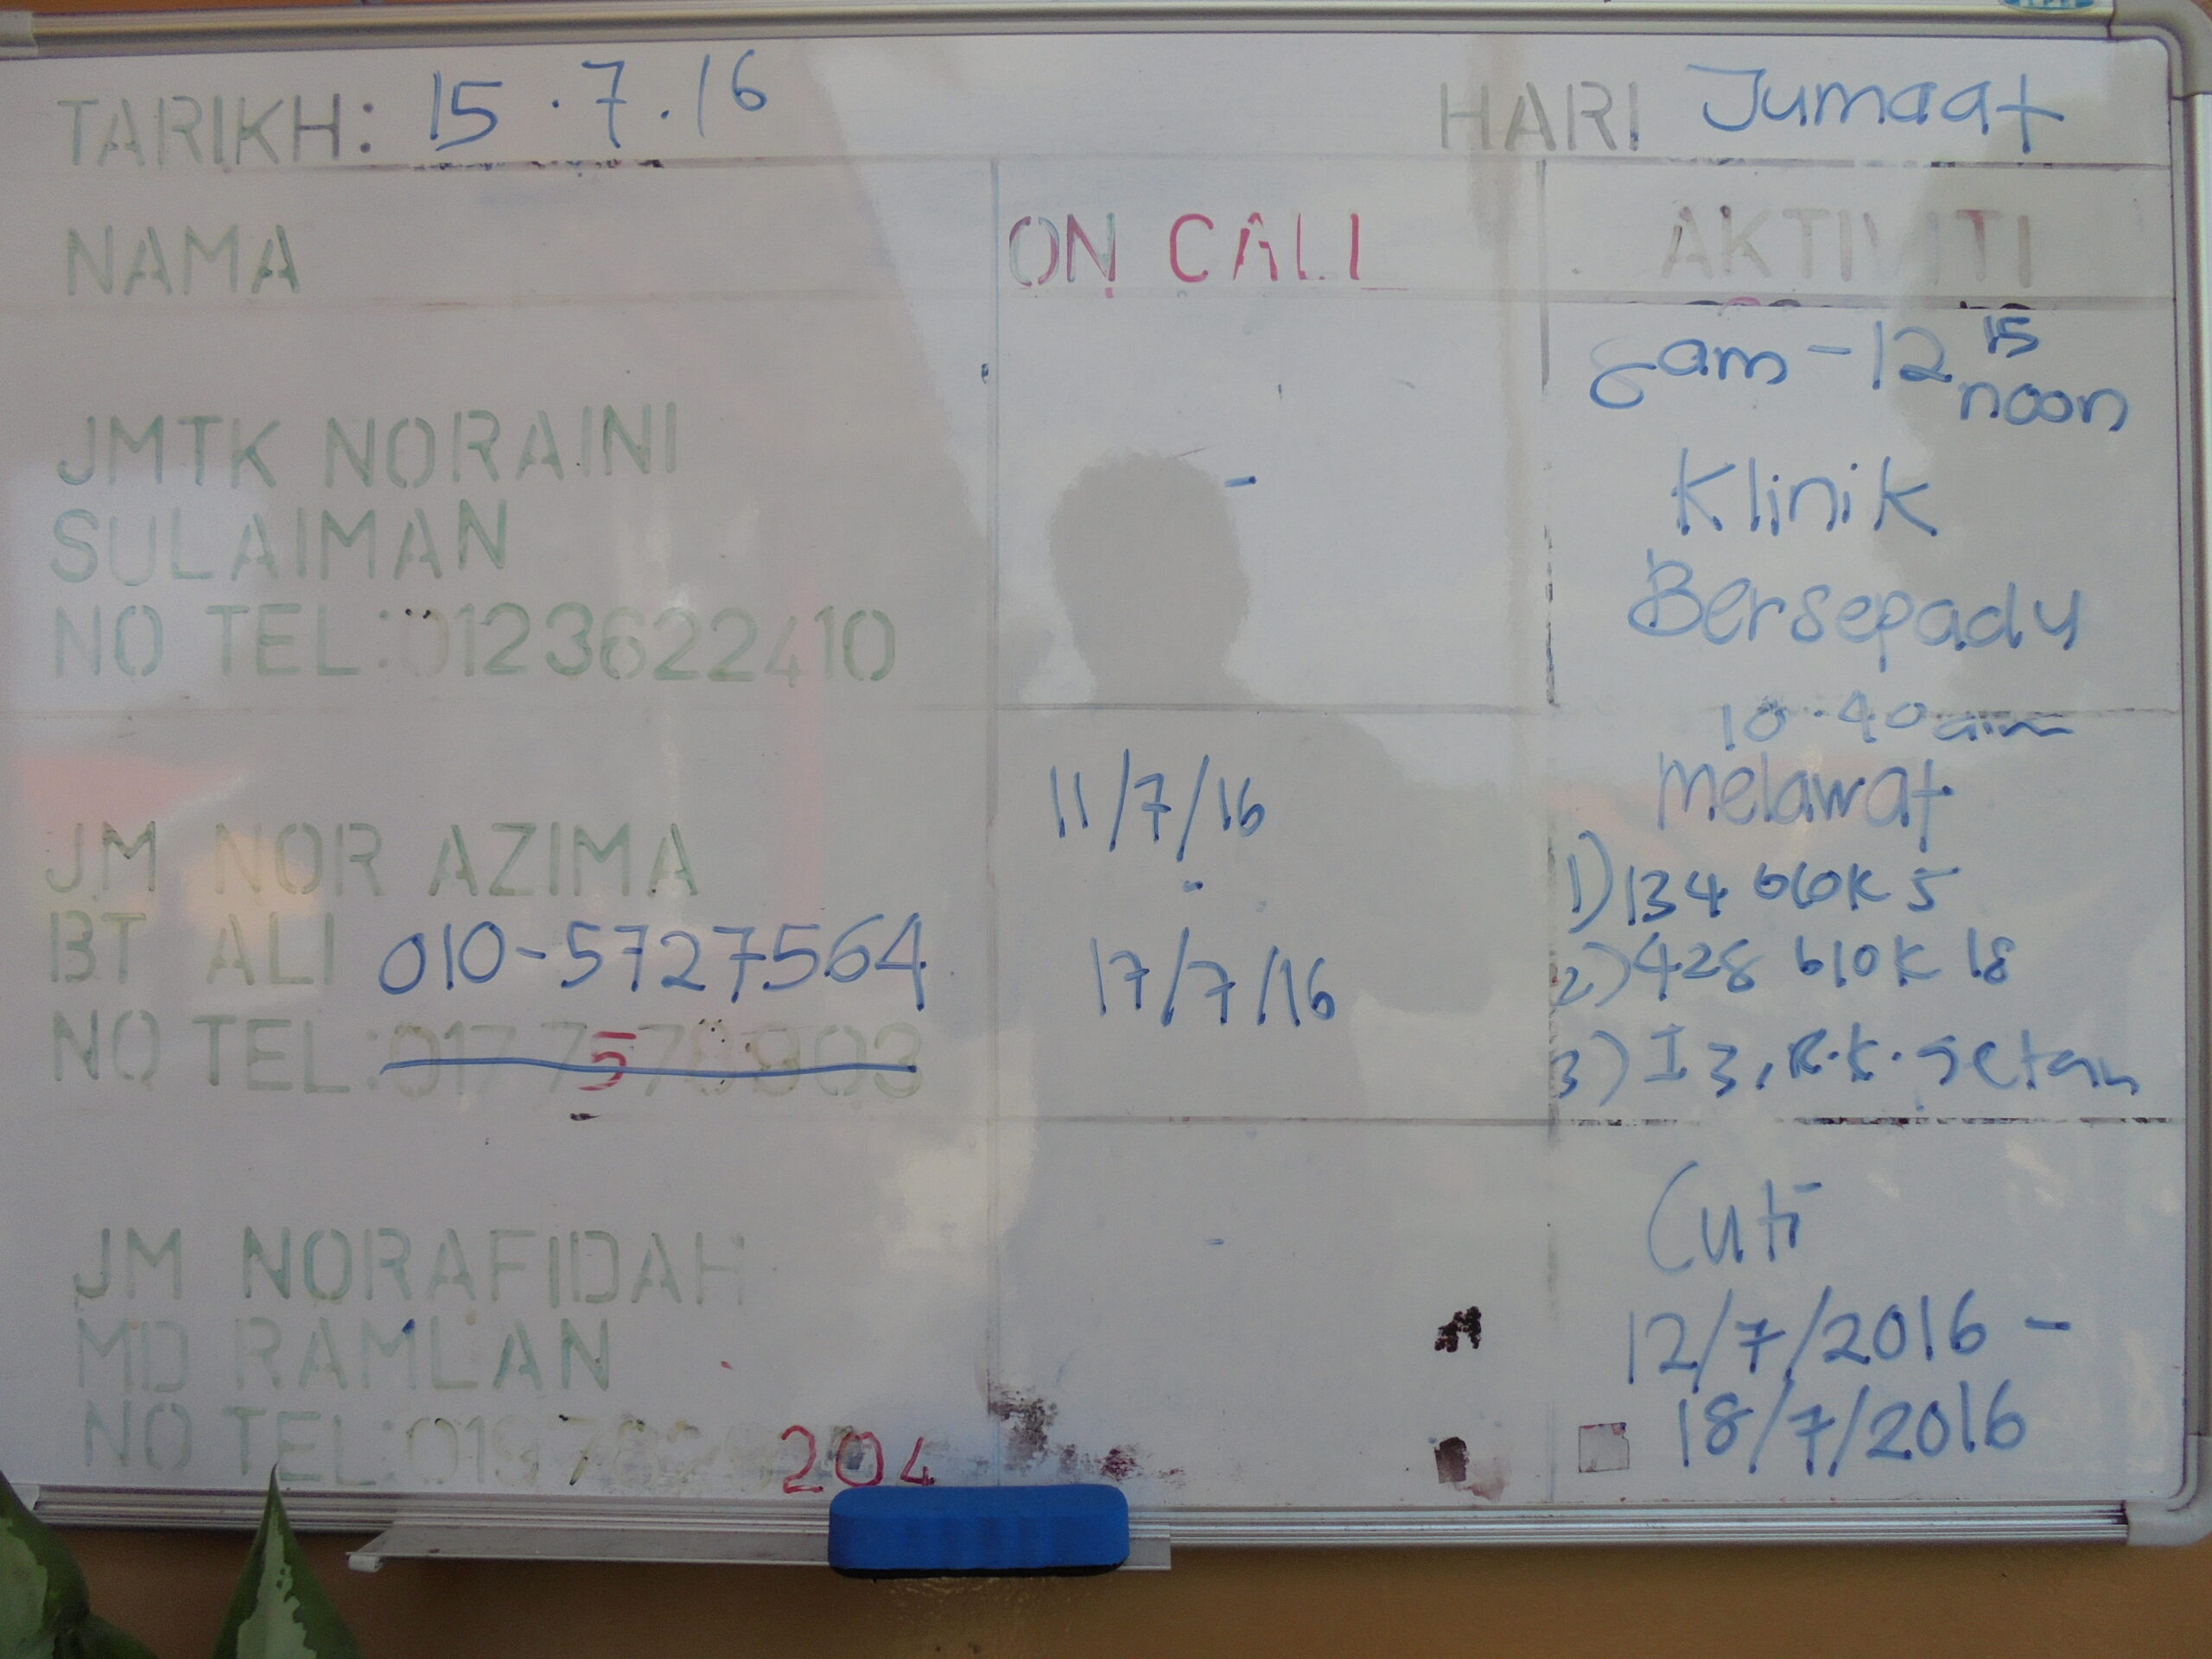 TARIKH: 15.7.16 HARI Jumaat
NAMA ON CALL AKTIVITI
8am - 12 15 noon
JMTK NORAINI
SULAIMAN
NO TEL: 0123622410
-
Klinik
Bersepadu
JM NOR AZIMA
BT ALI 010-5727564
NO TEL:
11/7/16
-
17/7/16
10.40am
Melawat
1) 134 blok 5
2) 428 blok 18
3) I 3, R.K.
JM NORAFIDAH
MD RAMLAN
NO TEL: 204
-
Cuti
12/7/2016 -
18/7/2016